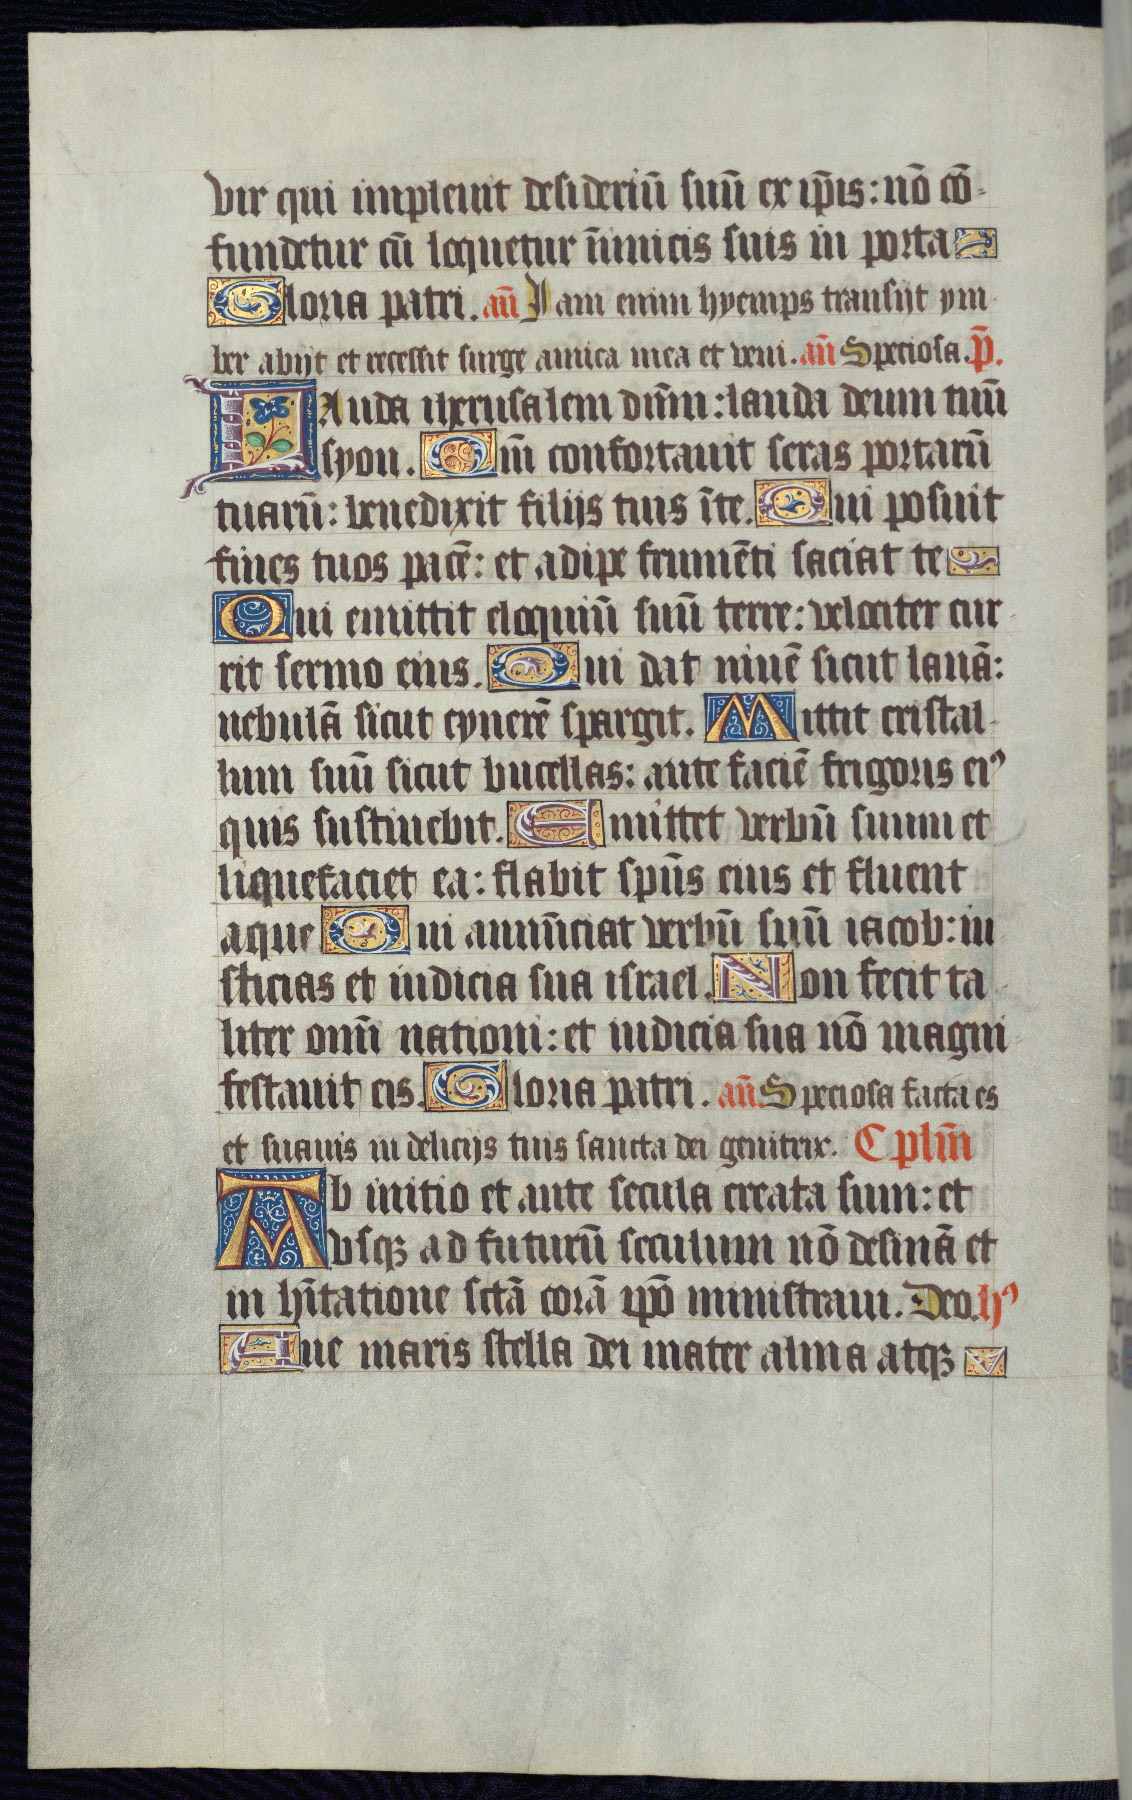 vir qui impleuit desideriū suū ex ip̄is: nō cō-
fundetur cū loquetur īnimicis suis in porta
Gloria patri. an̄ Iam enim hyemps transijt ym-
ber abijt et recessit surge amica mea et veni. an̄ Speciosa. p̄.
Lauda iherusalem dn̄m: lauda deum tuū
syon. Qm̄ confortauit seras portarū
tuarū: benedixit filijs tuis ī te. Qui posuit
fines tuos pacē: et adipe frumēti saciat te
Qui emittit eloquiū suū terre: velociter cur-
rit sermo eius. Qui dat niuē sicut lanā:
nebulā sicut cynerē spargit. Mittit cristal-
lum suū sicut bucellas: ante faciē frigoris eiꝰ
quis sustinebit. Emittet verbū suum et
liquefaciet ea: flabit spūs eius et fluent
aque Qui annūciat verbū suū iacob: iu
sticias et iudicia sua israel. Non fecit ta-
liter omī nationi: et iudicia sua nō magni-
festauit eis. Gloria patri. an̄. Speciosa facta es
et suauis in delicijs tuis sancta dei genitrix. Cplm̄
Ab initio et ante secula creata sum: et
vsqꝫ ad futurū seculum nō desinā et
in hītatione sctā corā ipō ministraui. Deo. hꝰ
Aue maris stella dei mater alma atqꝫ